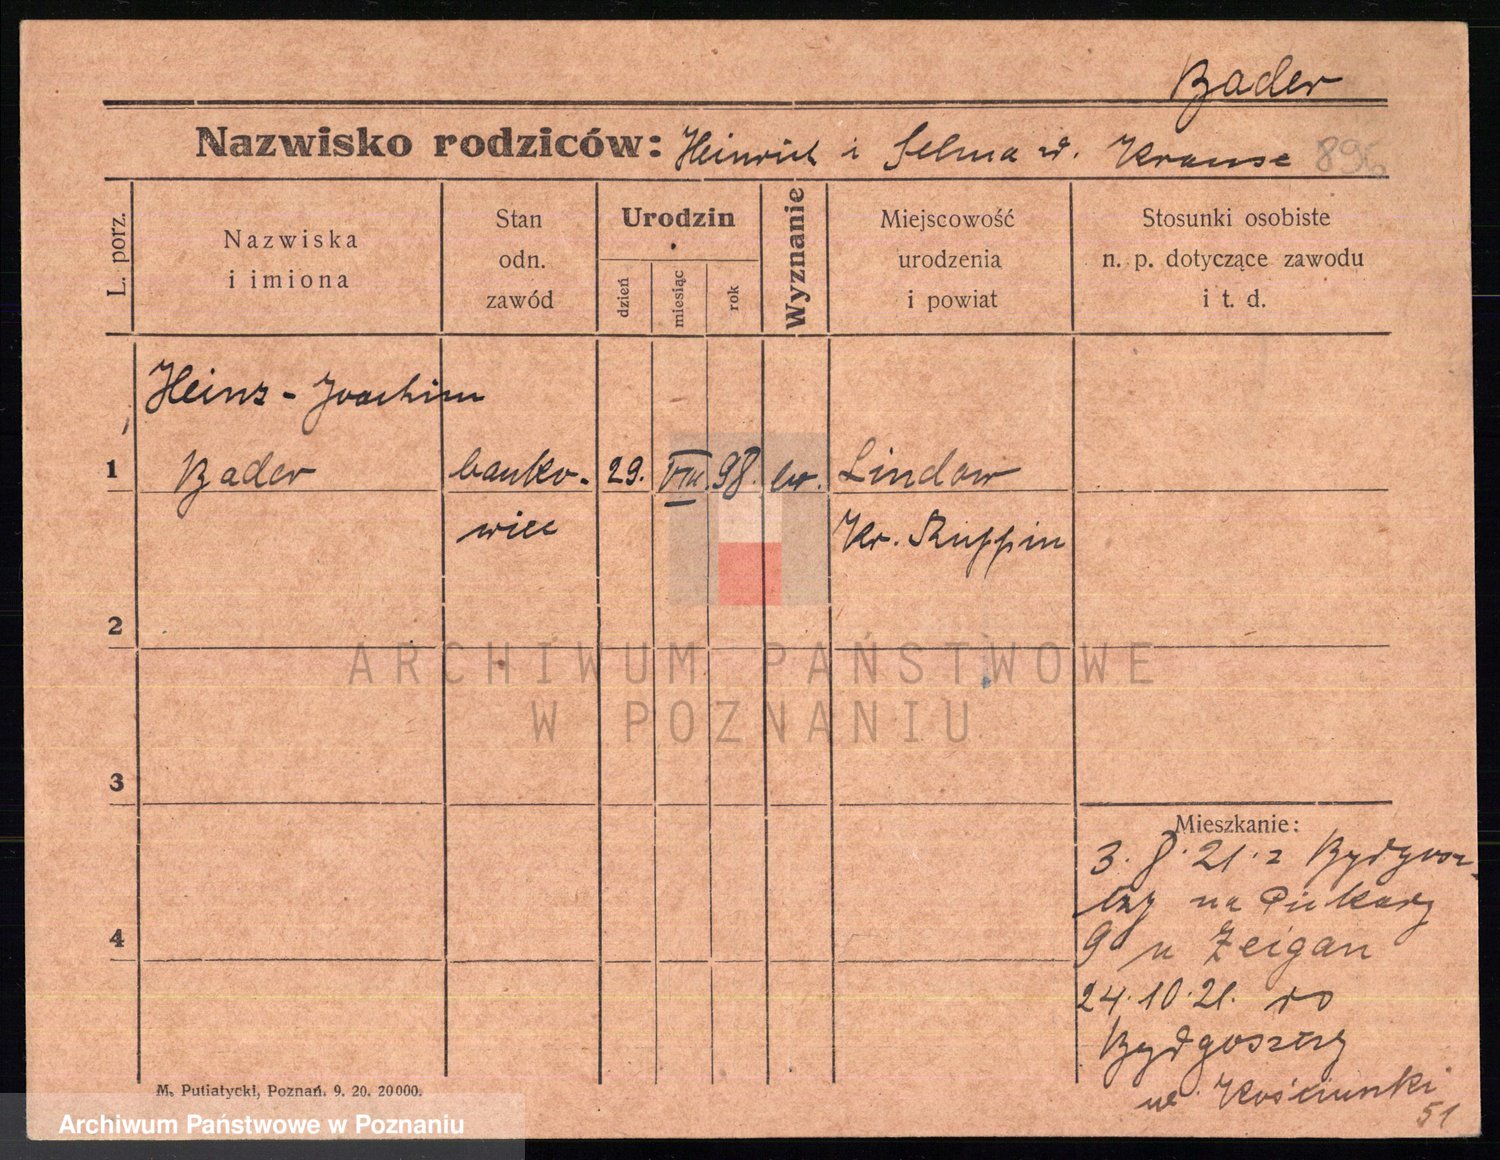 Bader
Nazwisko rodziców: Heinrich i Selma d. Krause 896
L. porz.
Nazwiska
i imiona
Stan
odn.
zawód
Urodzin
dzień
miesiąc
rok
Wyznanie
Miejscowość
urodzenia
i powiat
Stosunki osobiste
n. p. dotyczące zawodu
i t. d.
Heinz - Joachim
1 Bader banko- 29. VIII 98. ew. Lindow
wiec Kr. Ruppin
2
ARCHIWUM PAŃSTWOWE
W POZNANIU
3
Mieszkanie:
3. 8. 21. z Bydgosz-
czy na Piekary
9 u Zeigan
4
24. 10. 21. do
Bydgoszczy
M. Putiatycki, Poznań. 9. 20. 20000.
ul. Kościuszki
51
Archiwum Państwowe w Poznaniu